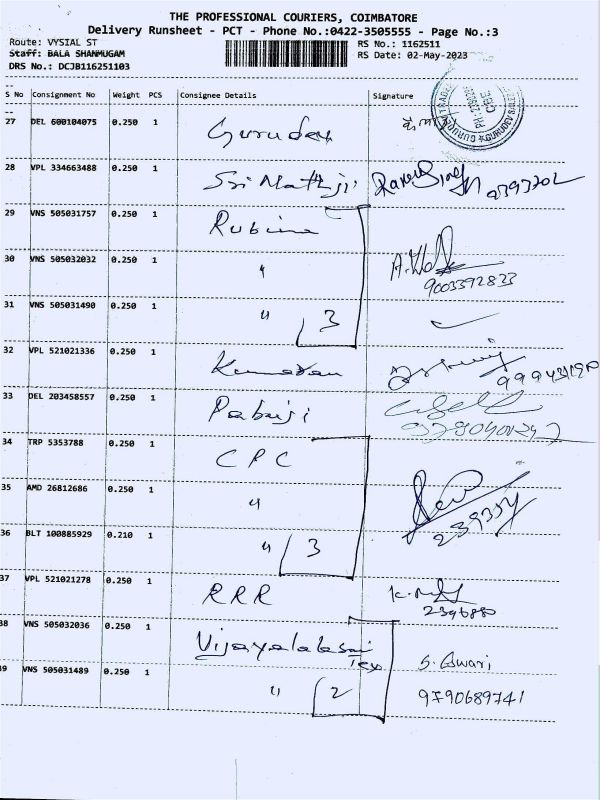 THE PROFESSIONAL COURIERS, COIMBATORE
Delivery Runsheet - PCT - Phone No.:0422-3505555 - Page No.:3
Route: VYSIAL ST RS No.: 1162511
Staff: BALA SHANMUGAM RS Date: 02-May-2023
DRS No.: DCJB116251103
S No Consignment No Weight PCS Consignee Details Signature
27 DEL 600104075 0.250 1 Gurudev
28 VPL 334663488 0.250 1 Sri Nathji
29 VNS 505031757 0.250 1 Rubina
30 VNS 505032032 0.250 1 "
9003392833
31 VNS 505031490 0.250 1 " 3
32 VPL 521021336 0.250 1 Kumaran
33 DEL 203458557 0.250 1 Pabuji
34 TRP 5353788 0.250 1 CPC
35 AMD 26812686 0.250 1 "
36 BLT 100885929 0.210 1 " 3
37 VPL 521021278 0.250 1 RRR
2396880
38 VNS 505032036 0.250 1 Vijayalakshmi Tex
39 VNS 505031489 0.250 1 " 2 9790689741